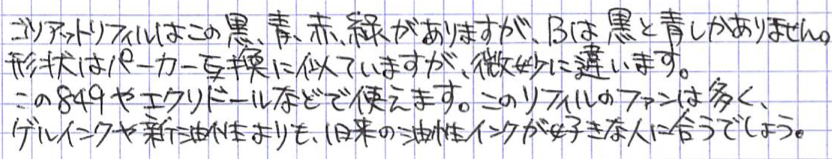 ゴリアットリフィルはこの黒、青、赤、緑がありますが、Bは黒と青しかありません。
形状はパーカー互換に似ていますが、微妙に違います。
この849やエクリドールなどで使えます。このリフィルのファンは多く、
ゲルインクや新油性よりも、旧来の油性インクが好きな人に合うでしょう。